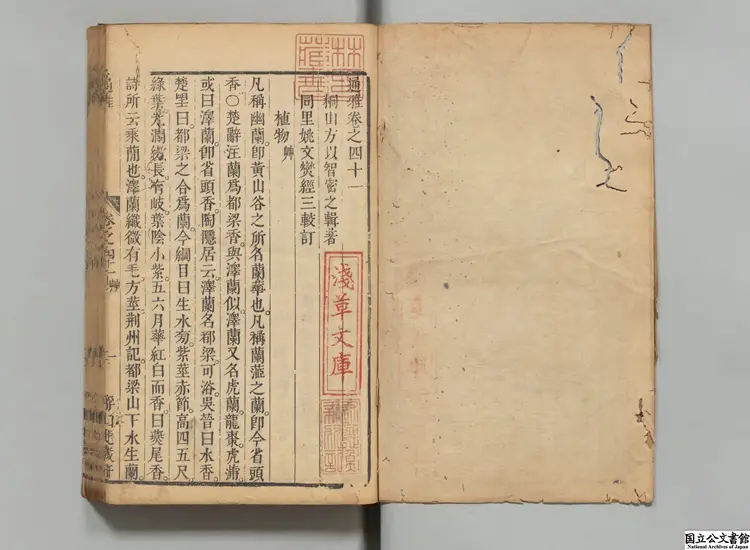 通雅卷之四十一
桐山方以智密之輯著
同里姚文燮經三較訂
植物艸
凡稱幽蘭卽黃山谷之所名蘭華也凡稱蘭蕰之蘭卽今省頭
香〇楚辭注蘭爲都梁香與澤蘭似澤蘭又名虎蘭龍棗虎蒲
或曰澤蘭卽省頭香陶隱居云澤蘭名都梁可浴吳晉曰水香
楚望曰都梁之合爲蘭今綱目曰生水旁紫莖赤節高四五尺
綠葉光潤繡長有岐葉陰小紫五六月華紅白而香曰燕尾香
詩所云乘蕳也澤蘭纖微有毛方莖荆州記都梁山下水生蘭
通雅
卷之四十一 艸
一
淺草文庫
国立公文書館
National Archives of Japan